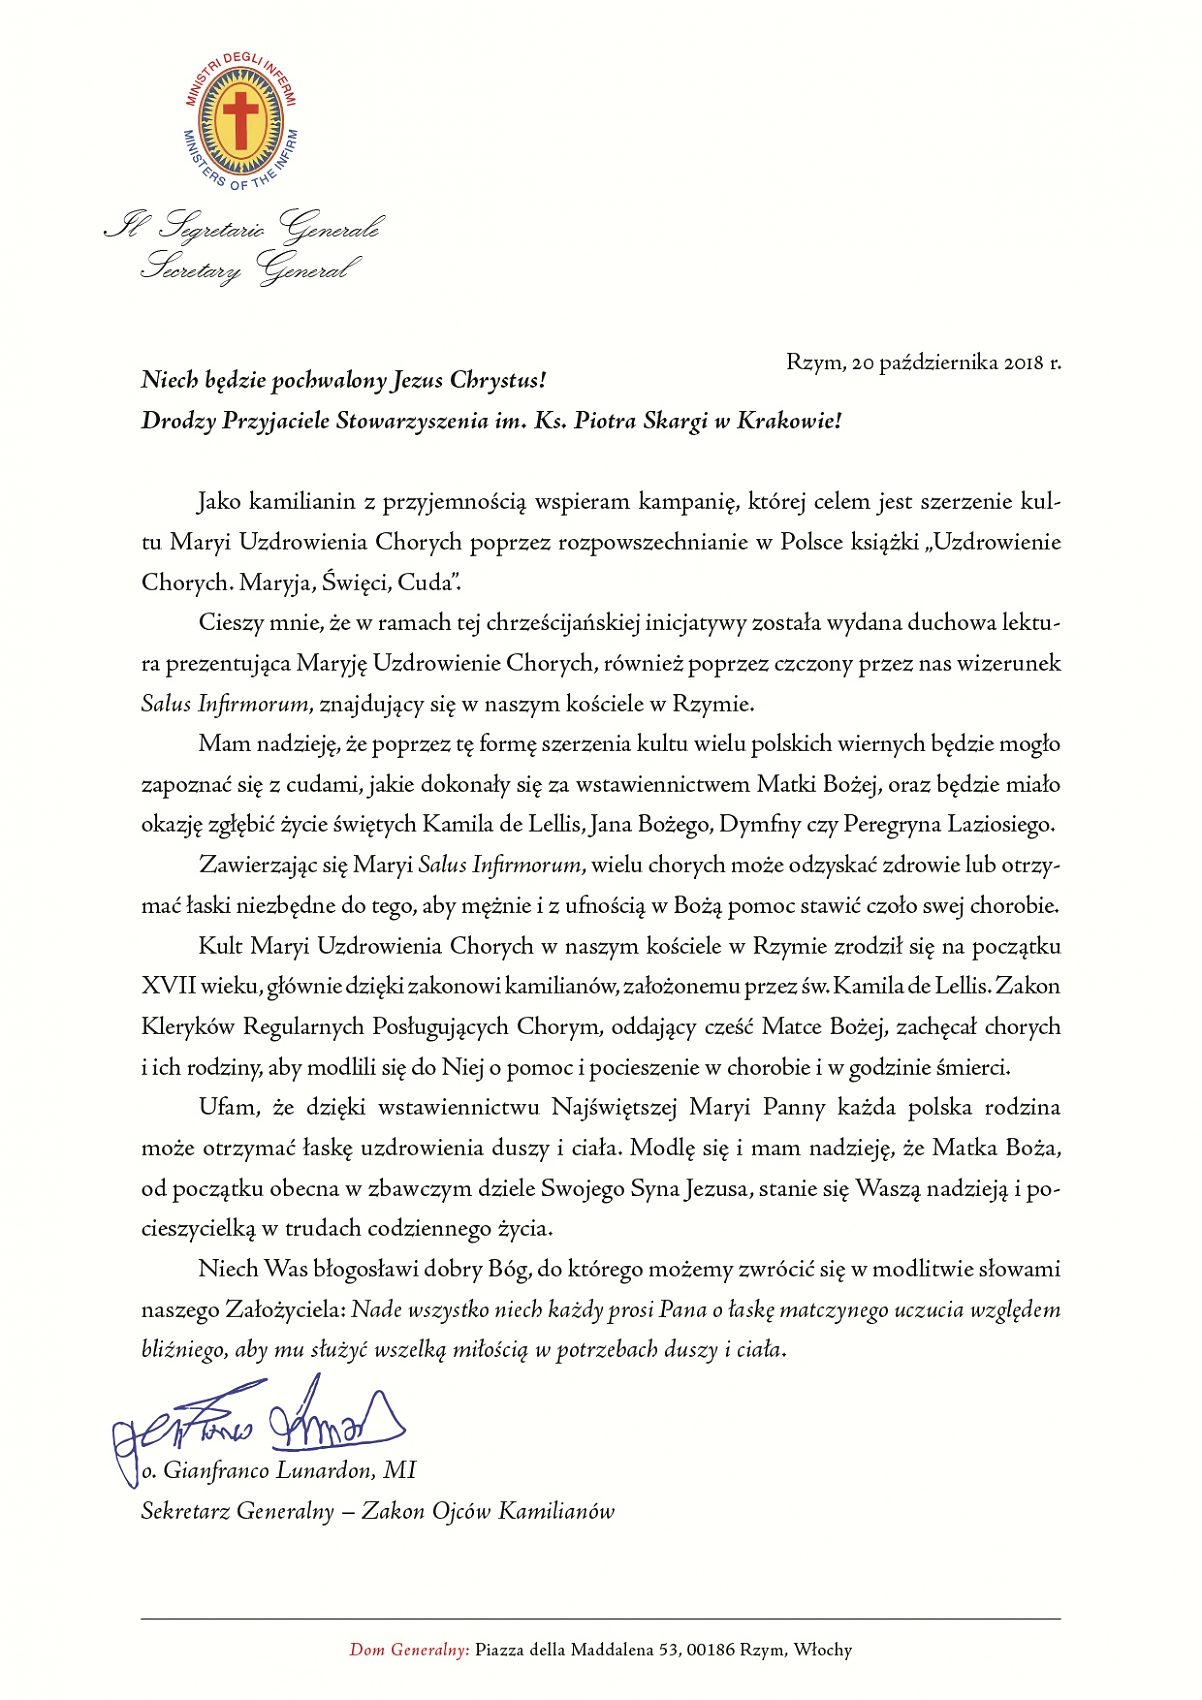 MINISTRI DEGLI INFERMI
MINISTERS OF THE INFIRM
Il Segretario Generale
Secretary General
Rzym, 20 października 2018 r.
Niech będzie pochwalony Jezus Chrystus!
Drodzy Przyjaciele Stowarzyszenia im. Ks. Piotra Skargi w Krakowie!
Jako kamilianin z przyjemnością wspieram kampanię, której celem jest szerzenie kul-
tu Maryi Uzdrowienia Chorych poprzez rozpowszechnianie w Polsce książki „Uzdrowienie
Chorych. Maryja, Święci, Cuda”.
Cieszy mnie, że w ramach tej chrześcijańskiej inicjatywy została wydana duchowa lektu-
ra prezentująca Maryję Uzdrowienie Chorych, również poprzez czczony przez nas wizerunek
Salus Infirmorum, znajdujący się w naszym kościele w Rzymie.
Mam nadzieję, że poprzez tę formę szerzenia kultu wielu polskich wiernych będzie mogło
zapoznać się z cudami, jakie dokonały się za wstawiennictwem Matki Bożej, oraz będzie miało
okazję zgłębić życie świętych Kamila de Lellis, Jana Bożego, Dymfny czy Peregryna Laziosiego.
Zawierzając się Maryi Salus Infirmorum, wielu chorych może odzyskać zdrowie lub otrzy-
mać łaski niezbędne do tego, aby mężnie i z ufnością w Bożą pomoc stawić czoło swej chorobie.
Kult Maryi Uzdrowienia Chorych w naszym kościele w Rzymie zrodził się na początku
XVII wieku, głównie dzięki zakonowi kamilianów, założonemu przez św. Kamila de Lellis. Zakon
Kleryków Regularnych Posługujących Chorym, oddający cześć Matce Bożej, zachęcał chorych
i ich rodziny, aby modlili się do Niej o pomoc i pocieszenie w chorobie i w godzinie śmierci.
Ufam, że dzięki wstawiennictwu Najświętszej Maryi Panny każda polska rodzina
może otrzymać łaskę uzdrowienia duszy i ciała. Modlę się i mam nadzieję, że Matka Boża,
od początku obecna w zbawczym dziele Swojego Syna Jezusa, stanie się Waszą nadzieją i po-
cieszycielką w trudach codziennego życia.
Niech Was błogosławi dobry Bóg, do którego możemy zwrócić się w modlitwie słowami
naszego Założyciela: Nade wszystko niech każdy prosi Pana o łaskę matczynego uczucia względem
bliźniego, aby mu służyć wszelką miłością w potrzebach duszy i ciała.
o. Gianfranco Lunardon, MI
Sekretarz Generalny – Zakon Ojców Kamilianów
Dom Generalny: Piazza della Maddalena 53, 00186 Rzym, Włochy